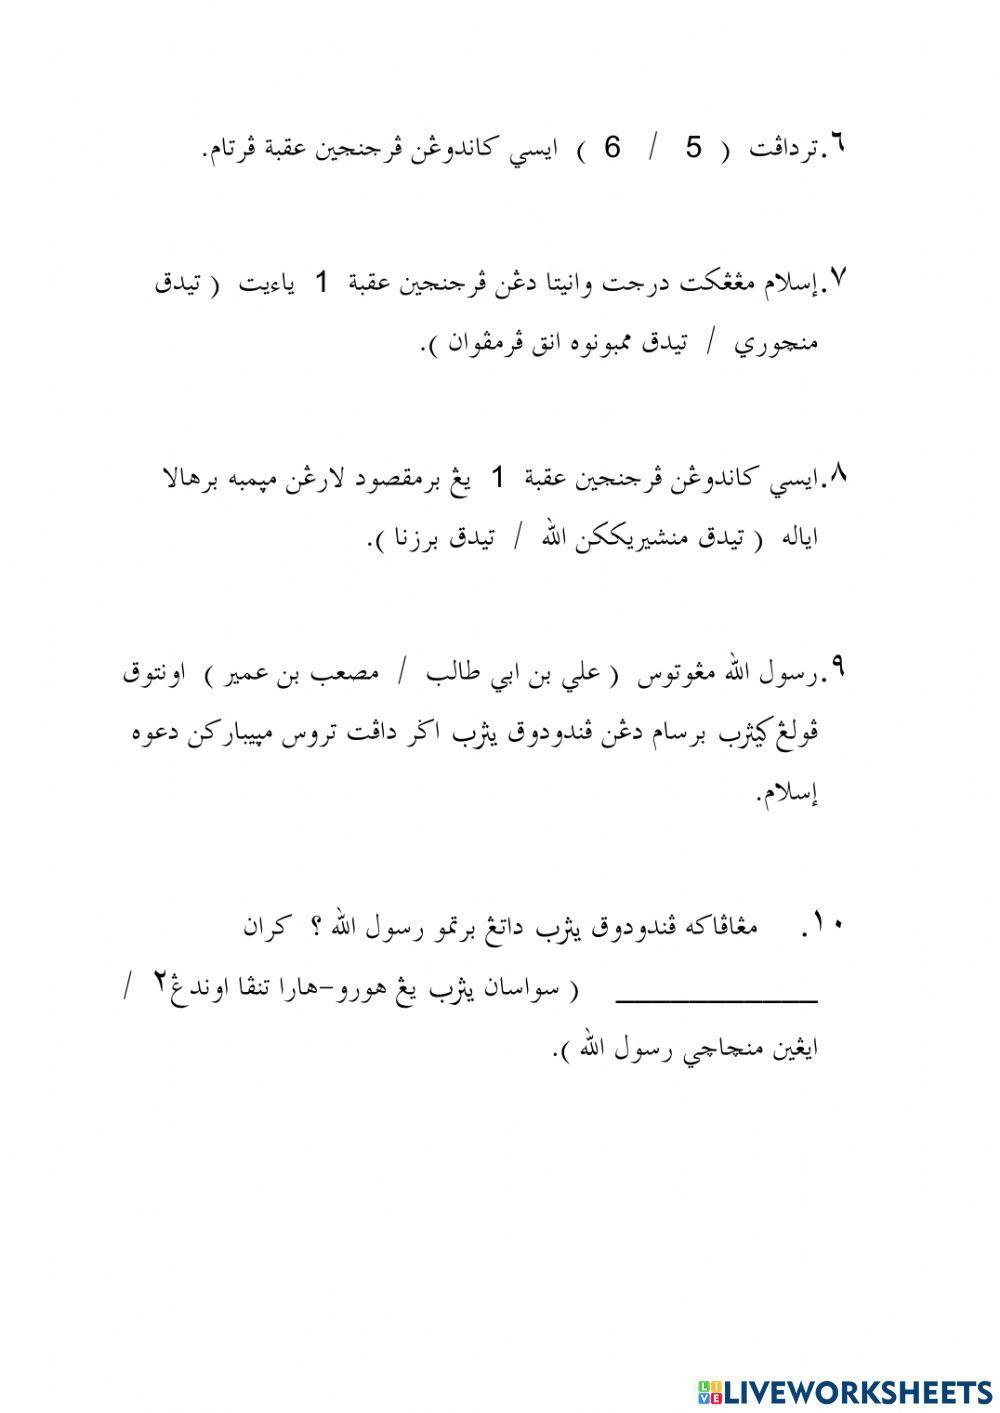 ٦. ترداڤت ( 5 / 6 ) ايسي كاندوڠن ڤرجنجين عقبة ڤرتام.
٧. إسلام مڠڠكت درجت وانيتا دڠن ڤرجنجين عقبة 1 ياءيت ( تيدق
منچوري / تيدق ممبونوه انق ڤرمڤوان ).
٨. ايسي كاندوڠن ڤرجنجين عقبة 1 يڠ برمقصود لارڠن مڽمبه برهالا
اياله ( تيدق منشيريككن الله / تيدق برزنا ).
٩. رسول الله مڠوتوس ( علي بن ابي طالب / مصعب بن عمير ) اونتوق
ڤولڠ كيثرب برسام دڠن ڤندودوق يثرب اڬر داڤت تروس مڽيباركن دعوه
إسلام.
١٠. مڠاڤاكه ڤندودوق يثرب داتڠ برتمو رسول الله ؟ كران
___________ ( سواسان يثرب يڠ هورو-هارا تنڤا اوندڠ٢ /
ايڠين منچاچي رسول الله ).
LIVEWORKSHEETS